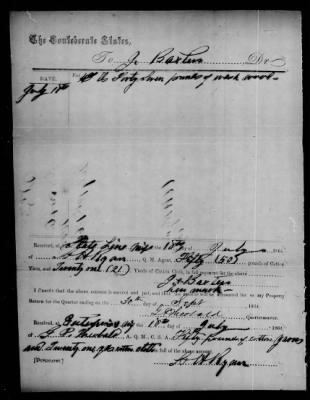 The Confederate States,
To J. Baxter Dr
DATE.
July 18th For the Forty Seven pounds of wash wool
Received, at State Line Miss 18th of July
of B. H. Ryan Q. M. Agent, Fifty (50) pounds of Cotton
Yarn, and Twenty one (21) Yards of Cotton Cloth, in full payment for the above
J. Baxter
his mark
I Certify that the above account is correct and just, and that the articles will be accounted for on my Property
Return for the Quarter ending on the 30th day of Sept 1864.
Theobald Quartermaster.
Received, at Enterprise Miss 18th day of July 1864
of Theobald A. Q. M., C. S. A. Fifty pounds of cotton yarns
and Twenty one yds cotton cloth
in full of the above account.
[DUPLICATE] B. H. Ryan